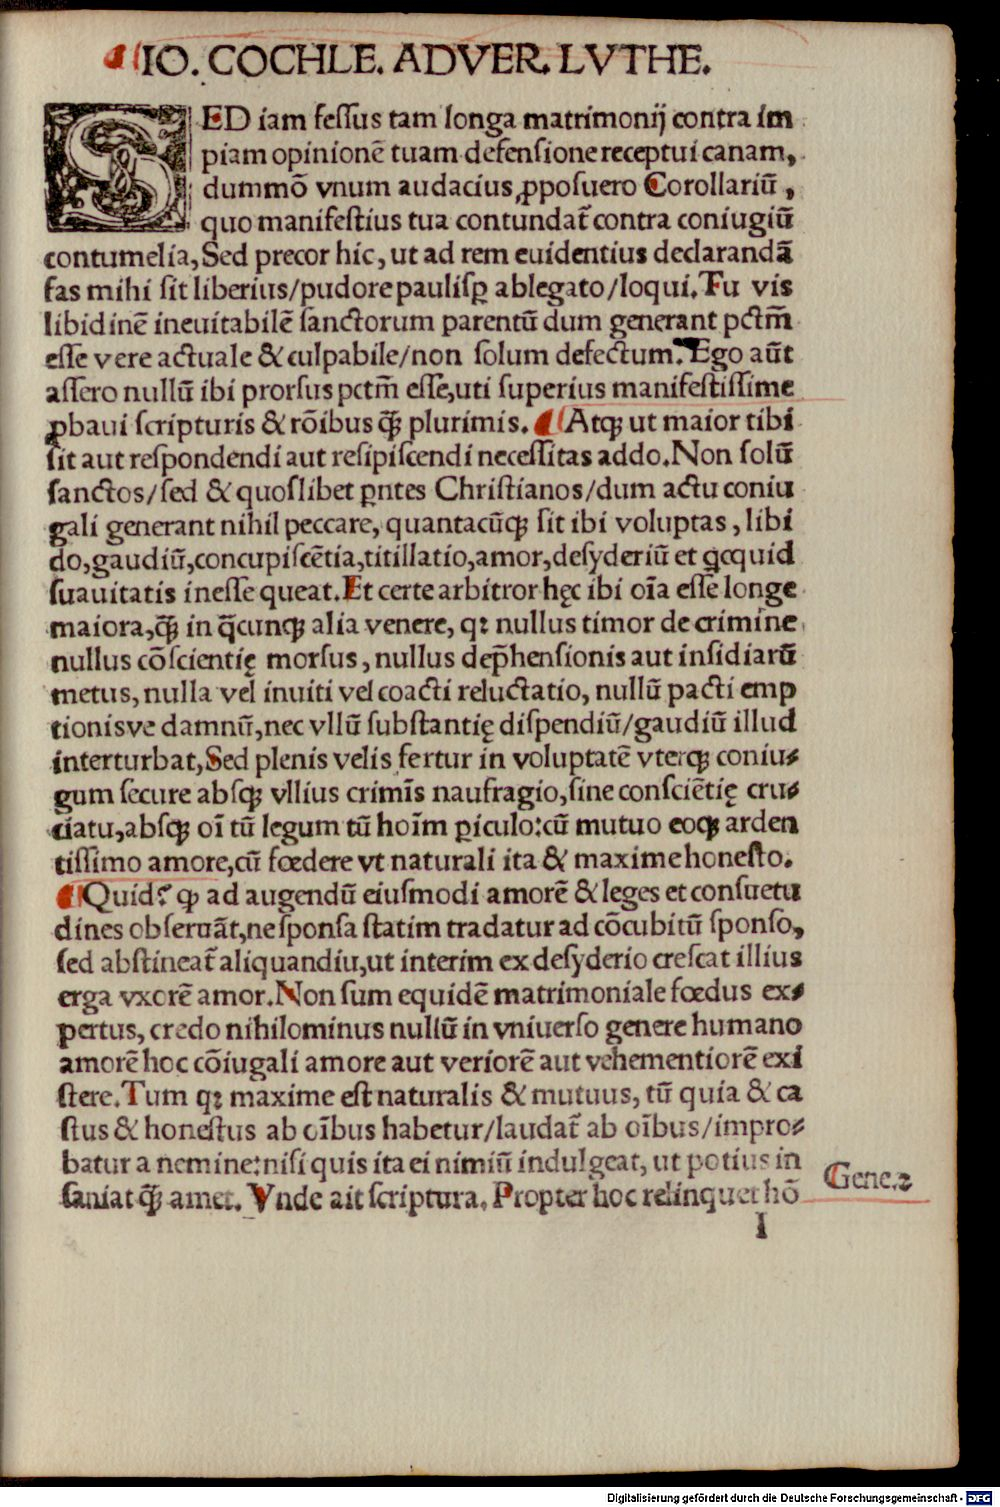 IO. COCHLE. ADVER. LVTHE.
SED iam fessus tam longa matrimonij contra im
piam opinionē tuam defensione receptui canam,
dummō vnum audacius ꝓposuero Corollariū,
quo manifestius tua contundat᷑ contra coniugiū
contumelia, Sed precor hic, ut ad rem euidentius declarandā
fas mihi sit liberius/pudore paulisꝑ ablegato/loqui. Tu vis
libidinē ineuitabilē sanctorum parentū dum generant pctm̄
esse vere actuale & culpabile/non solum defectum. Ego aūt
assero nullū ibi prorsus pctm̄ esse, uti superius manifestissime
ꝓbaui scripturis & rōibus q̄ꝫ plurimis. Atqꝫ ut maior tibi
sit aut respondendi aut resipiscendi necessitas addo. Non solū
sanctos/sed & quoslibet pn̄tes Christianos/dum actu coniu
gali generant nihil peccare, quantacūqꝫ sit ibi voluptas, libi
do, gaudiū, concupiscētia, titillatio, amor, desyderiū et qͥcquid
suauitatis inesse queat. Et certe arbitror hęc ibi oīa esse longe
maiora, q̄ꝫ in q̄cunqꝫ alia venere, qꝛ nullus timor de crimine
nullus cōscientię morsus, nullus dep̄hensionis aut insidiarū
metus, nulla vel inuiti vel coacti reluctatio, nullū pacti emp
tionisve damnū, nec vllū substantię dispendiū/gaudiū illud
interturbat, Sed plenis velis fertur in voluptatē vterqꝫ coniu⸗
gum secure absqꝫ vllius crimīs naufragio, sine consciētię cru⸗
ciatu, absqꝫ oī tū legum tū hoīm ꝑiculo: cū mutuo eoqꝫ arden
tissimo amore, cū fœdere vt naturali ita & maxime honesto.
Quid? ꝙ ad augendū eiusmodi amorē & leges et consuetu
dines obseruāt, ne sponsa statim tradatur ad cōcubitū sponso,
sed abstineat᷑ aliquandiu, ut interim ex desyderio crescat illius
erga vxorē amor. Non sum equidē matrimoniale fœdus ex⸗
pertus, credo nihilominus nullū in vniuerso genere humano
amorē hoc cōiugali amore aut veriorē aut vehementiorē exi
stere. Tum qꝛ maxime est naturalis & mutuus, tū quia & ca
stus & honestus ab oībus habetur/laudat᷑ ab oībus/impro⸗
batur a nemine: nisi quis ita ei nimiū indulgeat, ut potius in
saniat q̄ꝫ amet. Vnde ait scriptura. Propter hoc relinquet hō
Gene.2
I
Digitalisierung gefördert durch die Deutsche Forschungsgemeinschaft - DFG